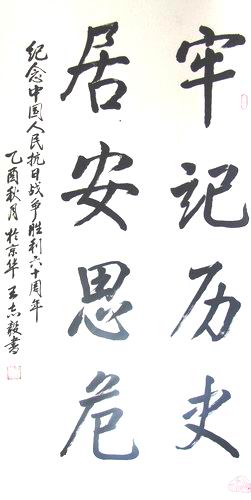 牢记历史
居安思危
纪念中国人民抗日战争胜利六十周年
乙酉秋月于京华王志毅书